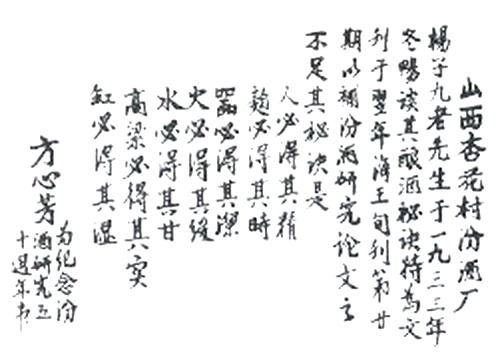 山西杏花村汾酒厂
楊子九老先生于一九三三年
冬暢谈其酿酒秘诀特为文
刊于翌年海王旬刊第廿
期以補汾酒研究论文之
不足其秘诀是
人必得其精
麯必得其時
器必得其潔
火必得其缓
水必得其甘
高梁必得其实
缸必得其湿
方心芳
为纪念汾
酒研究五
十週年书